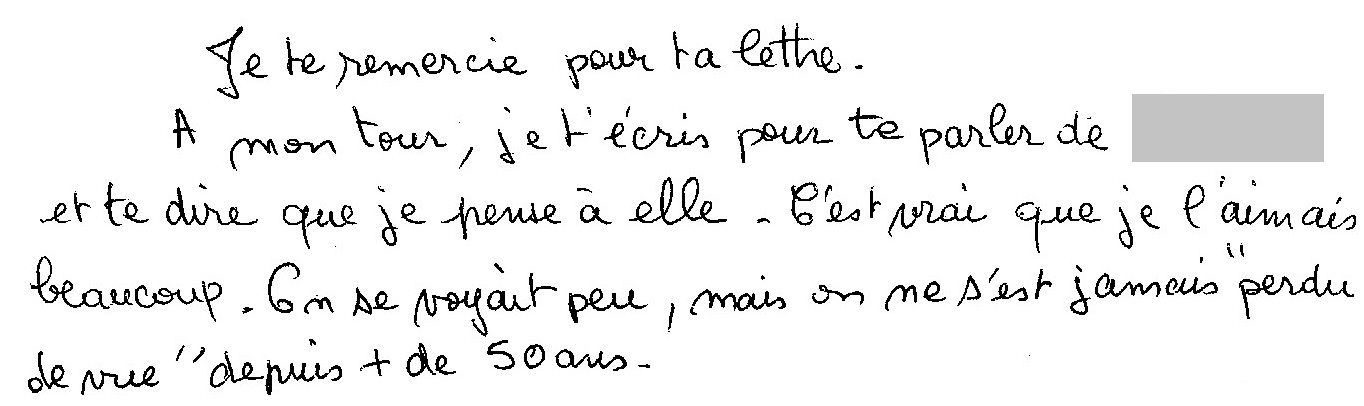 Je te remercie pour ta lettre.
A mon tour, je t'écris pour te parler de
et te dire que je pense à elle. C'est vrai que je l'aimais
beaucoup. On se voyait peu, mais on ne s'est jamais "perdu
de vue" depuis + de 50 ans.